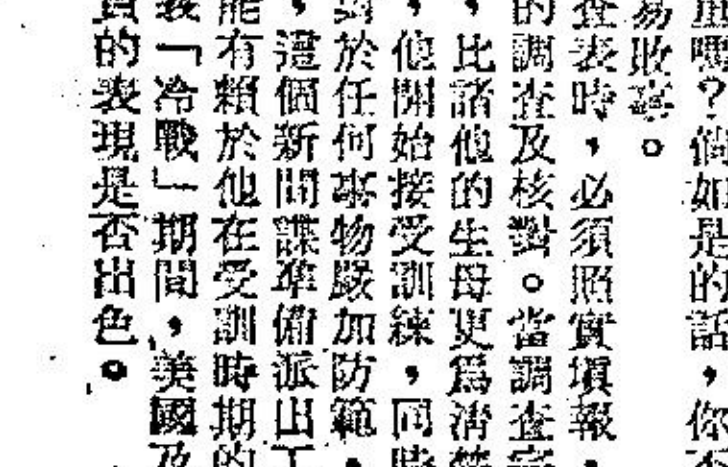 重嗎？倘如是的話，你不
易敗事。
查表時，必須照實填報，
的調查及核對。當調查完
，比諸他的生母更爲清楚
，他開始接受訓練，同時
對於任何事物嚴加防範，
，這個新間諜準備派出工
能有賴於他在受訓時期的
「冷戰」期間，美國及
負的表現是否出色。